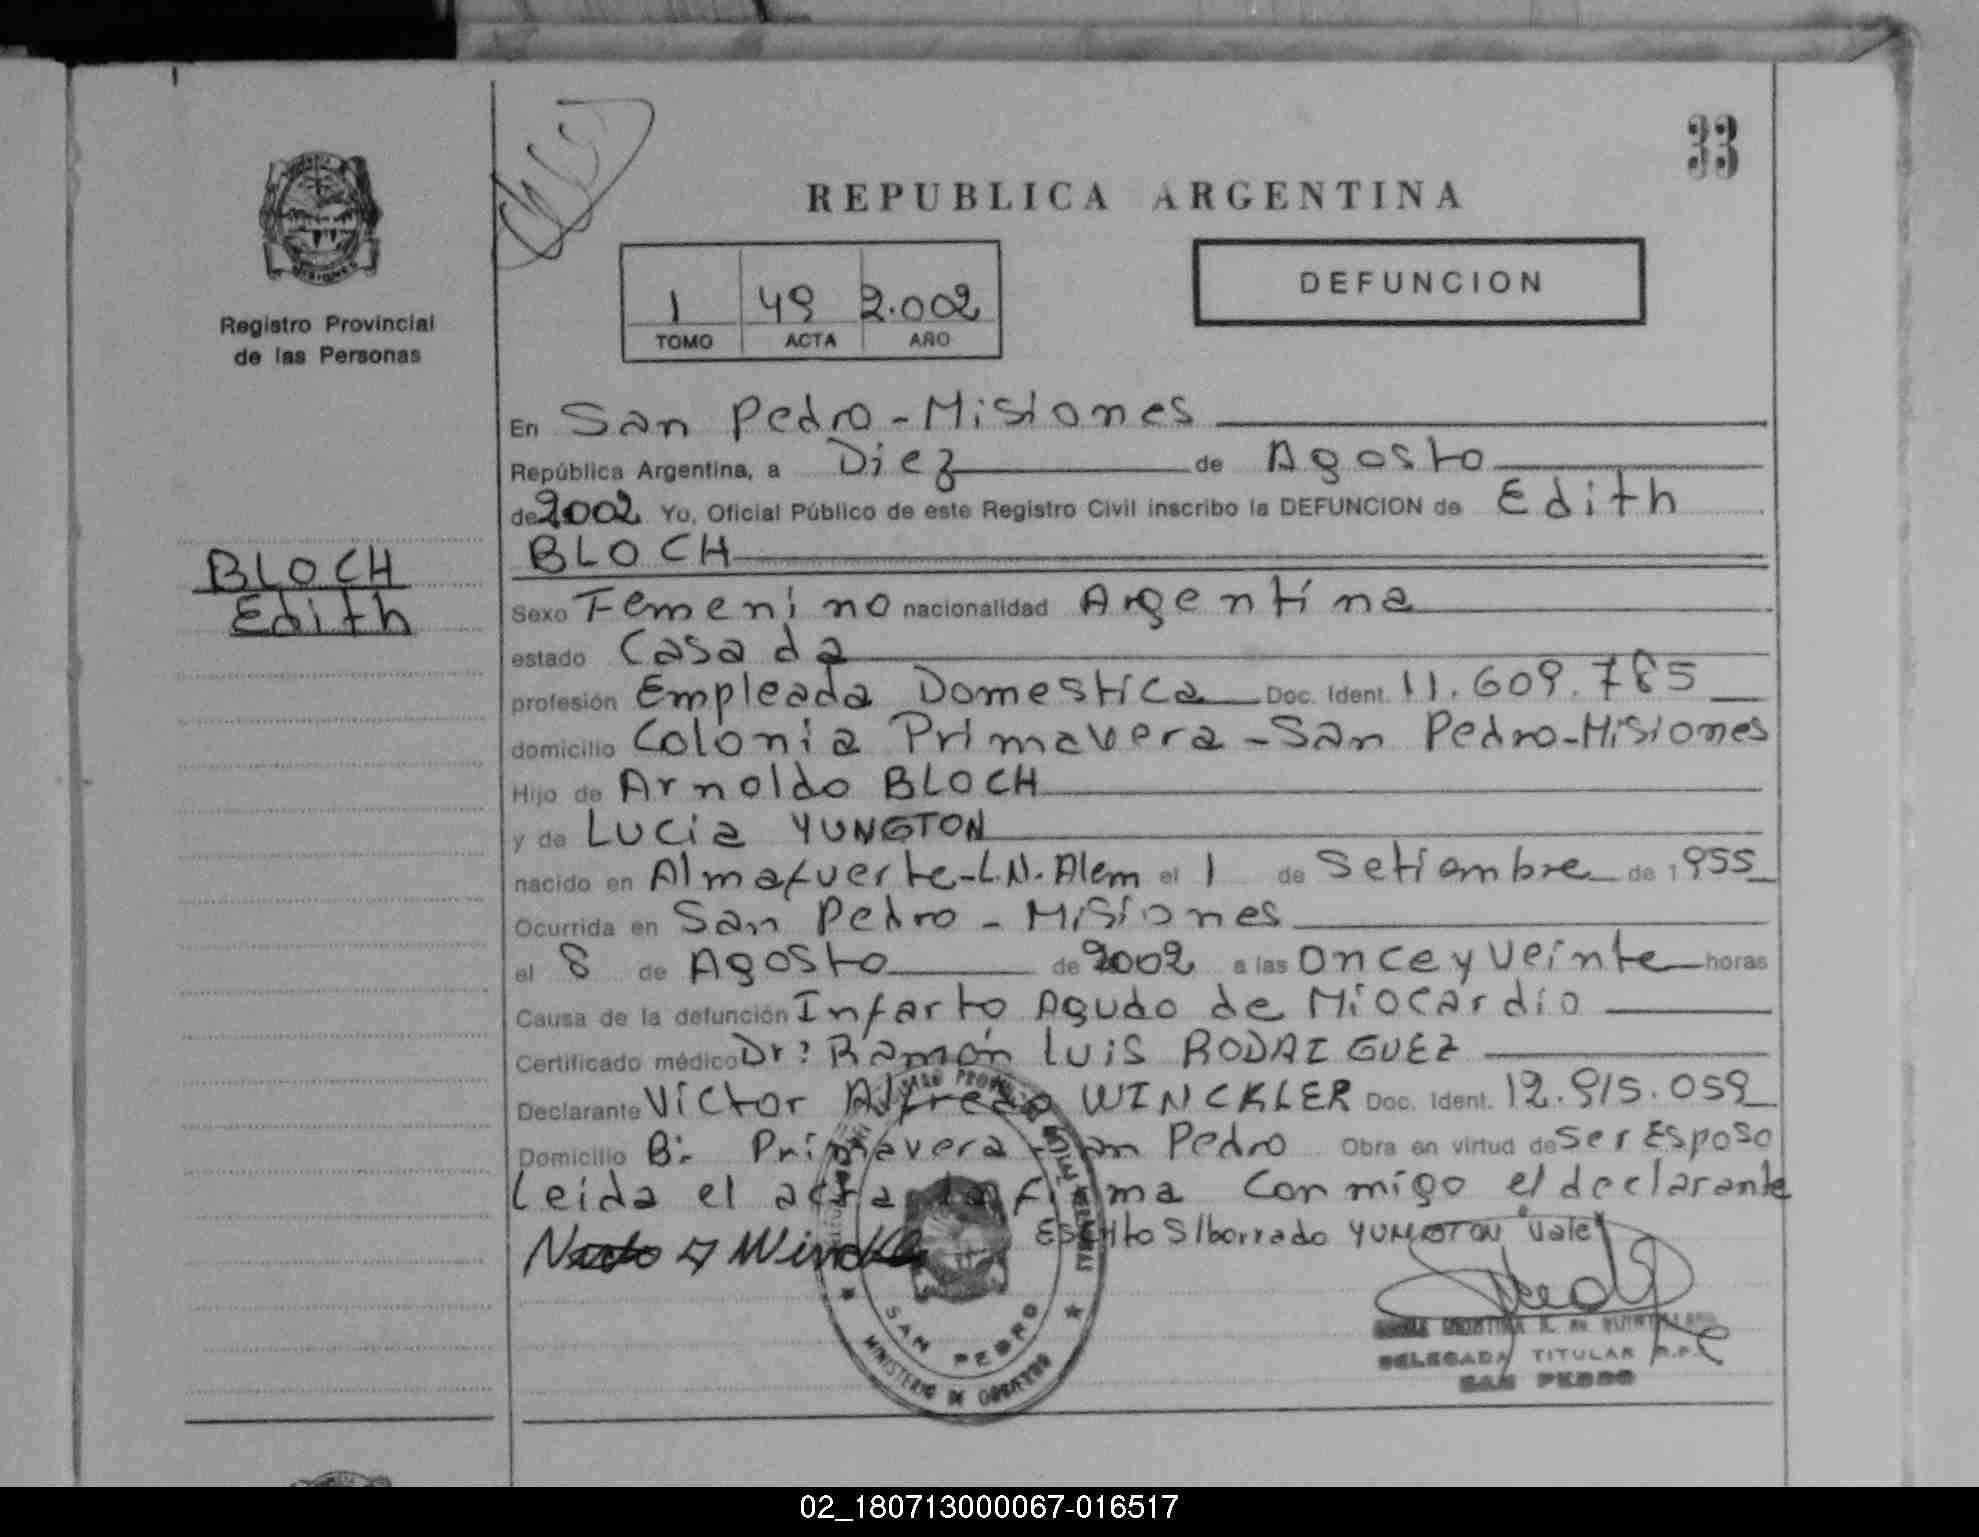 33
REPUBLICA ARGENTINA
DEFUNCION
1 49 2.002
TOMO ACTA AÑO
MISIONES
Registro Provincial
de las Personas
BLOCH
Edith
En San Pedro - Misiones
República Argentina, a Diez de Agosto
de 2002 Yo, Oficial Público de este Registro Civil inscribo la DEFUNCION de Edith
BLOCH
Sexo Femenino nacionalidad Argentina
estado Casada
profesión Empleada Domestica Doc. Ident. 11.609.785
domicilio Colonia Primavera - San Pedro - Misiones
Hijo de Arnoldo BLOCH
y de Lucia YUNGTON
nacido en Almafuerte - L.N. Alem el 1 de Setiembre de 1955
Ocurrida en San Pedro - Misiones
el 8 de Agosto de 2002 a las Once y Veinte horas
Causa de la defunción Infarto Agudo de Miocardio
Certificado médico Dr: Ramón Luis RODRIGUEZ
Declarante Victor Alfredo WINCKLER Doc. Ident. 12.915.059
Domicilio B: Primavera - San Pedro Obra en virtud de Ser Esposo
Leida el acta la firma Conmigo el declarante
Escrito S/borrado YUNGTON "Vale"
SAN PEDRO
MINISTERIO DE GOBIERNO
DELEGADA TITULAR R.P.
SAN PEDRO
02_180713000067-016517